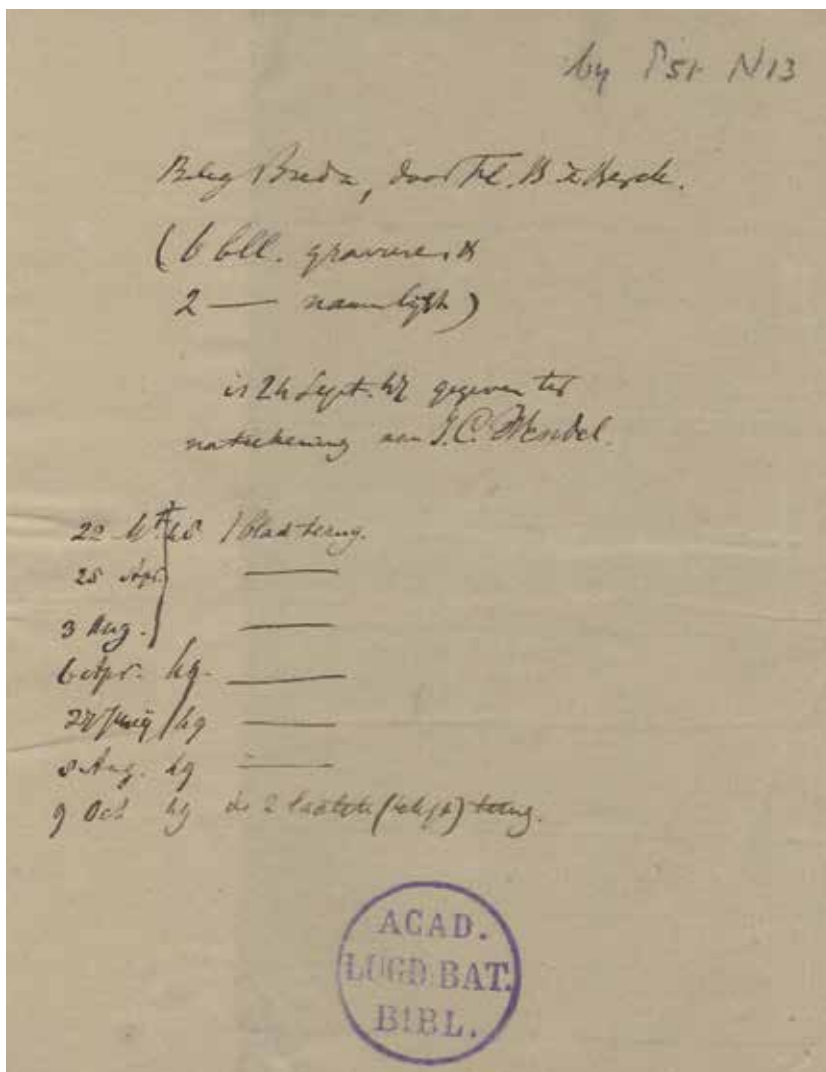 by P51 N13
Beleg Breda, door Fl. B. v. Berck.
(6 bll. gravuren &
2 — naamlijst)
is 24 Sept. 47 gegeven ter
natekening aan J.C. Wendel.
22 48 1 blad terug.
25 Apr. —
3 Aug. —
6 Apr. 49. —
27 Junij 49 —
8 Aug. 49 —
9 Oct 49 de 2 laatste (lijst) terug.
ACAD.
LUGD. BAT.
BIBL.